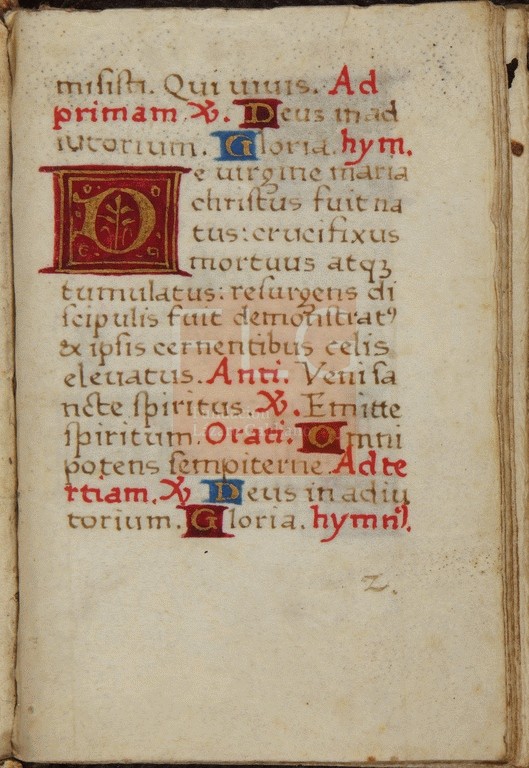 misisti. Qui uiuis. Ad
primam ℣. Deus in ad
iutorium. Gloria. hym.
De uirgine maria
christus fuit na
tus: crucifixus
mortuus atqꝫ
tumulatus: resurgens di
scipulis fuit demonstratꝰ
& ipsis cernentibus celis
eleuatus. Anti. Veni sa
ncte spiritus. ℣. Emitte
spiritum. Orati. Omni
potens sempiterne. Ad te
rtiam. ℣ Deus in adiu
torium. Gloria. hymnꝰ.
2